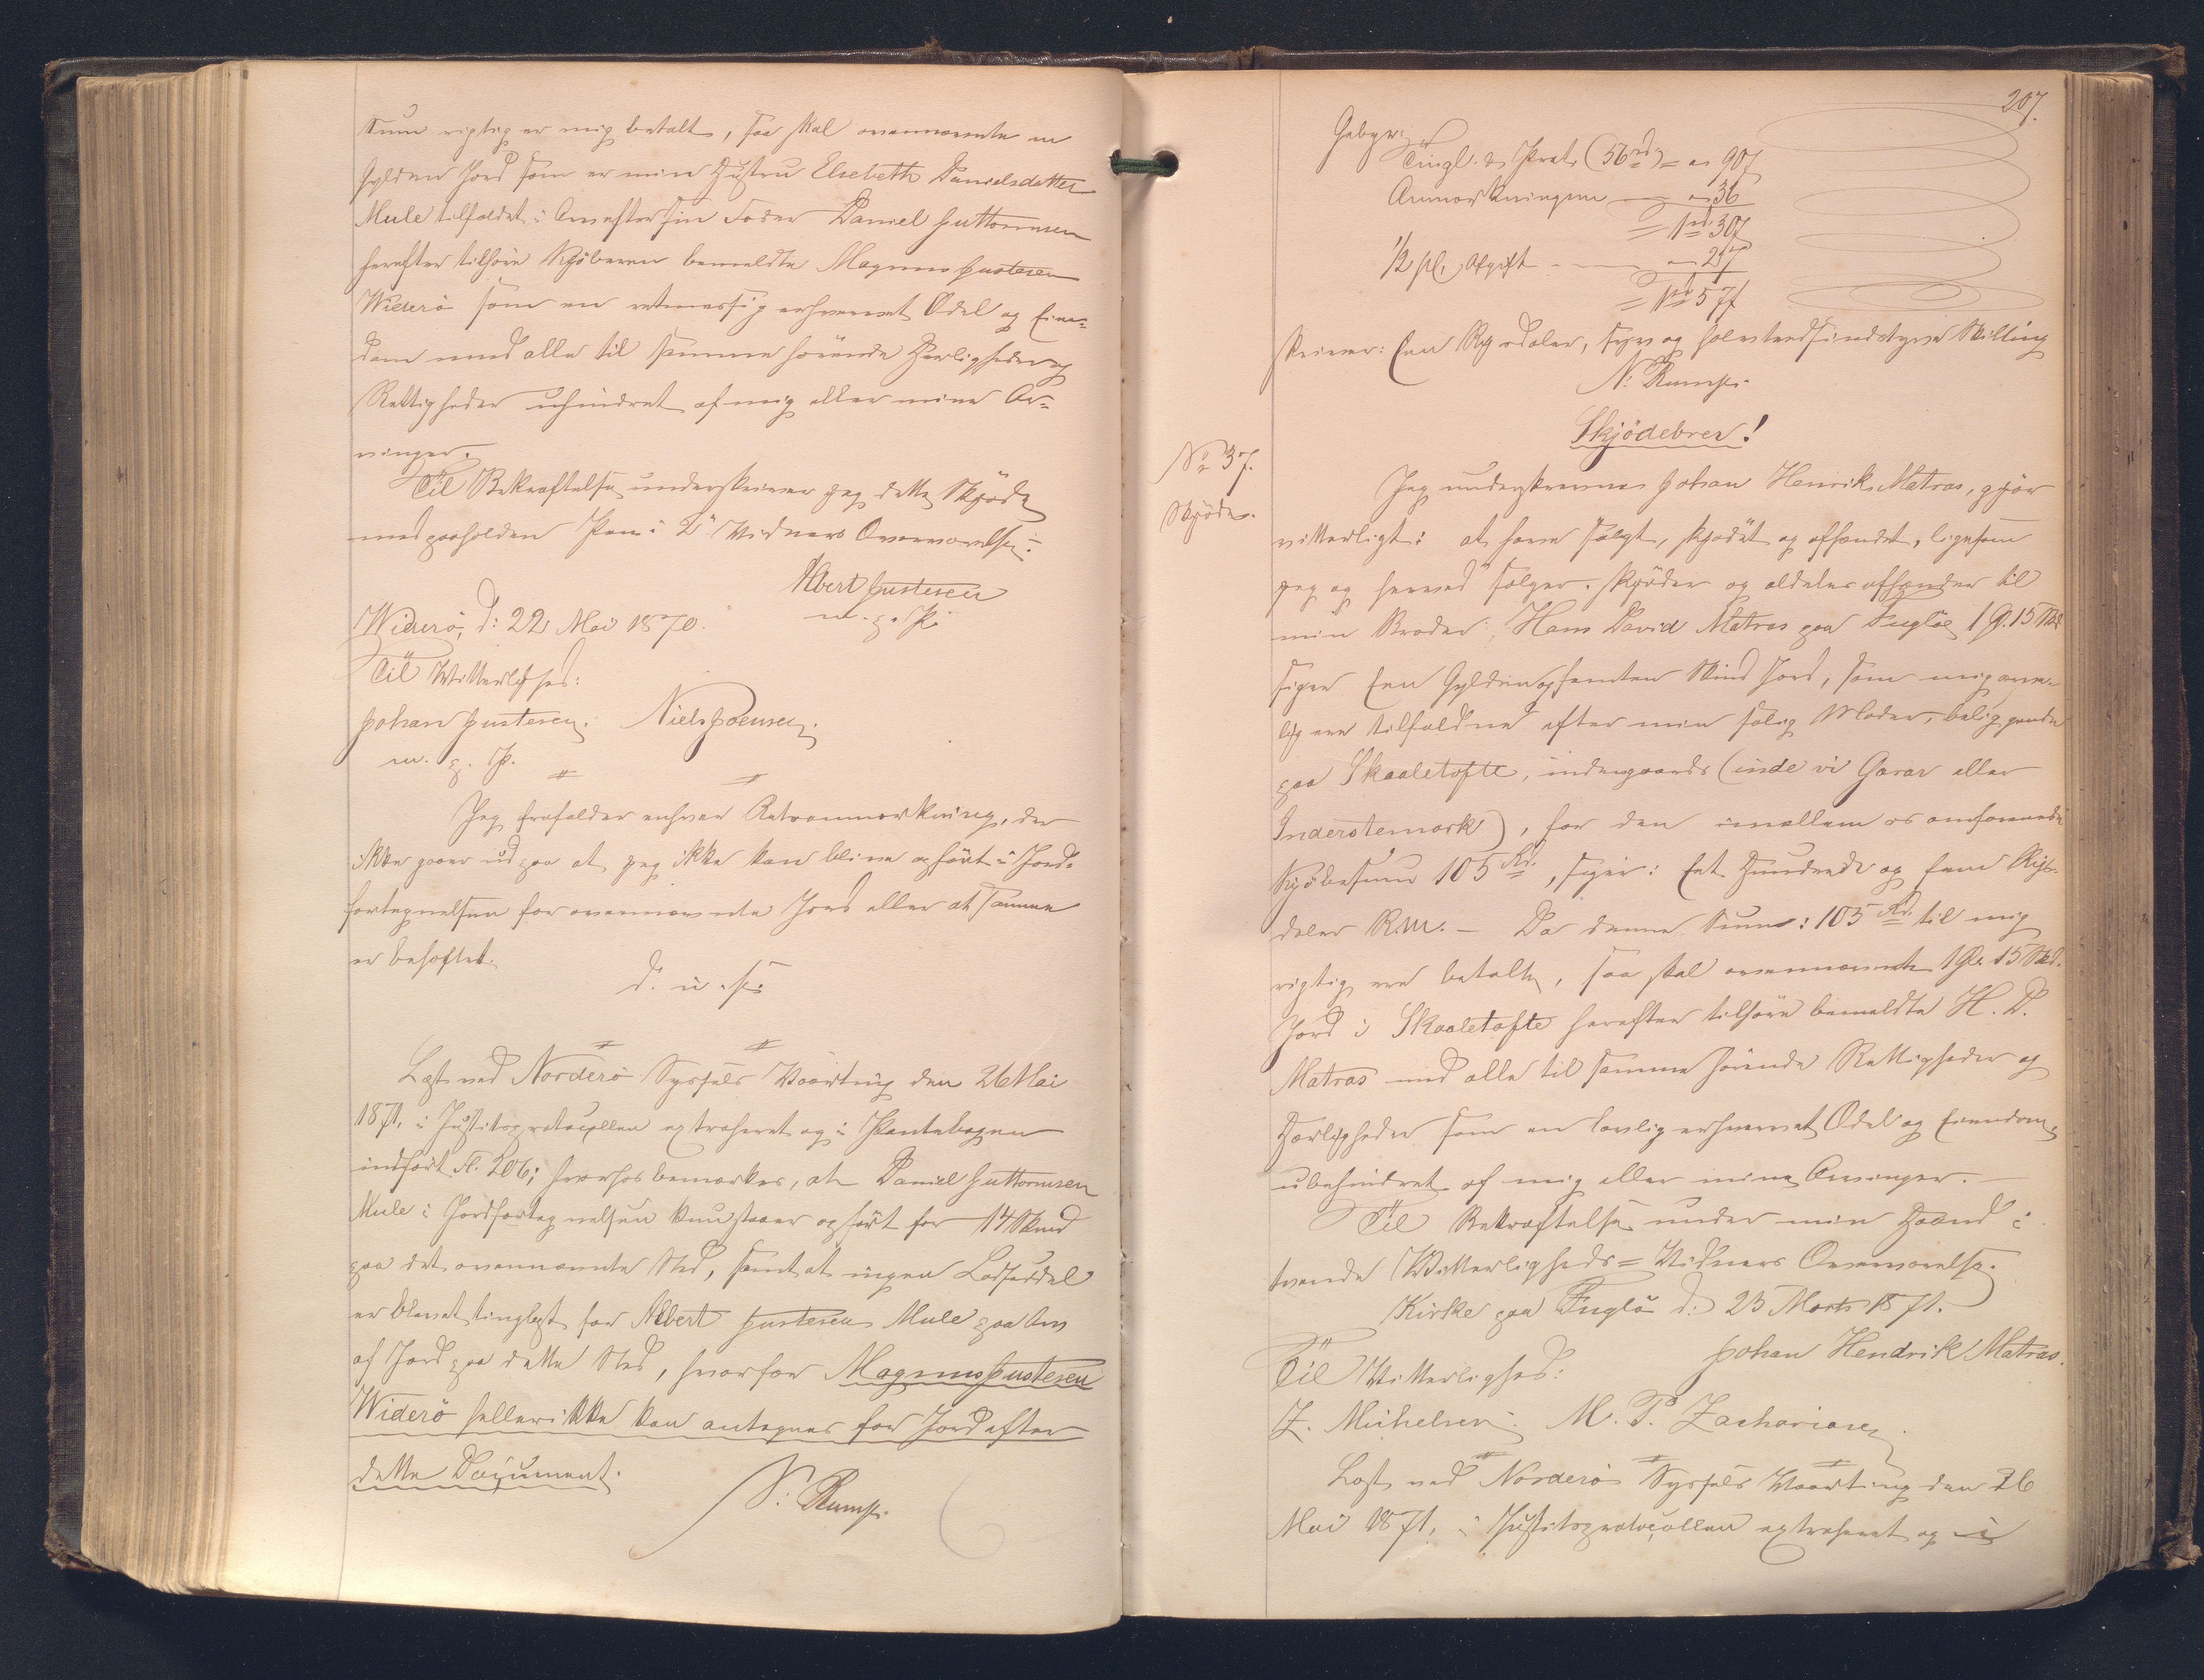 Sum rigtig er mig betalt, saa skal ovennævnte en
Gylden Jord som er min Hustru Elsebeth Danielsdatter
Mule tilfaldet i Arv efter sin Fader Daniel Guttormsen
herefter tilhøre Kjøberen bemeldte Magnus Justesen
Widerö som en retmæssig erhvervet Odel og Eien-
dom med alle til samme hörende Herligheder og
Rettigheder uhindret af mig eller mine Ar-
vinger.
Til Bekræftelse underskriver jeg dette Skjöde
med paaholden Pen i 2 Vidners Overværelse.
Albert Justesen
m. p. P.
Widerö, d: 22 Mai 1870.
Til Vitterlighed:
Johan Justesen. Niels Joensen.
m. p. P.
Jeg frafalder enhver Retsanmærkning, der
ikke gaaer ud paa at jeg ikke kan blive opfört i Jord-
fortegnelsen for ovennævnte Jord eller at samme
er behæftet.
d. u. s.
Læst ved Norderö Syssels Vaarting den 26 Mai
1871, i Justitsprotocollen extraheret og i Pantebogen
indfört Fl. 206; hvorhos bemærkes, at Daniel Guttormsen
Mule i Jordfortegnelsen kun staaer opfört for 14 Skind
paa det ovennævnte Sted, samt at ingen Lodseddel
er blevet tinglyst for Albert Justesen Mule paa Arv
af Jord paa dette Sted, hvorfor Magnus Justesen
Widerö heller ikke kan antegnes for Jord efter
dette Document.
N: Rump.
207.
Gebyr:
Tingl. & Prot. (56 rd) = = 90 f
Anmærkningen = 36
= 1 rd 30 f
1/2 pC. Afgift = 27
= 1 rd 57 f
skriver: Een Rigsdaler, syv og halvtredsindstyve Skilling
N: Rump.
Skjödebrev!
No 37.
Skjöde.
Jeg underskrevne Johan Henrik Matras, gjör
vitterligt: at have solgt, skjödet og afhændet, ligesom
jeg og herved sælger, skjöder og aldeles afhænder til
min Broder: Hans David Matras paa Fuglöe 1 G. 15 Skd
siger Een Gylden og femten Skind Jord, som mig arve-
lig ere tilfaldne efter min salig Moder, beliggende
paa Skaaletofte, indengaards (inde vi Garar eller
Inderstemark), for den imellem os omforenede
Kjöbesum 105 Rd., siger: Eet Hundrede og fem Rigs-
daler R.M. – Da denne Sum: 105 Rd. til mig
rigtig ere betalte, saa skal ovennævnte 1 Gl. 15 Skd.
Jord i Skaaletofte herefter tilhøre bemeldte H. D.
Matras med alle til samme hörende Rettigheder og
Herligheder som en lovlig erhvervet Odel og Eiendom,
ubehindret af mig eller mine Arvinger. –
Til Bekræftelse under min Haand i
tvende Vitterligheds = Vidners Overværelse.
Kirke paa Fuglö d: 25 Marts 1871.
Johan Hendrik Matras.
Til Vitterlighed:
Z. Michelsen. M. P. Zachariasen.
Læst ved Norderö Syssels Vaarting den 26
Mai 1871, i Justitsprotocollen extraheret og i